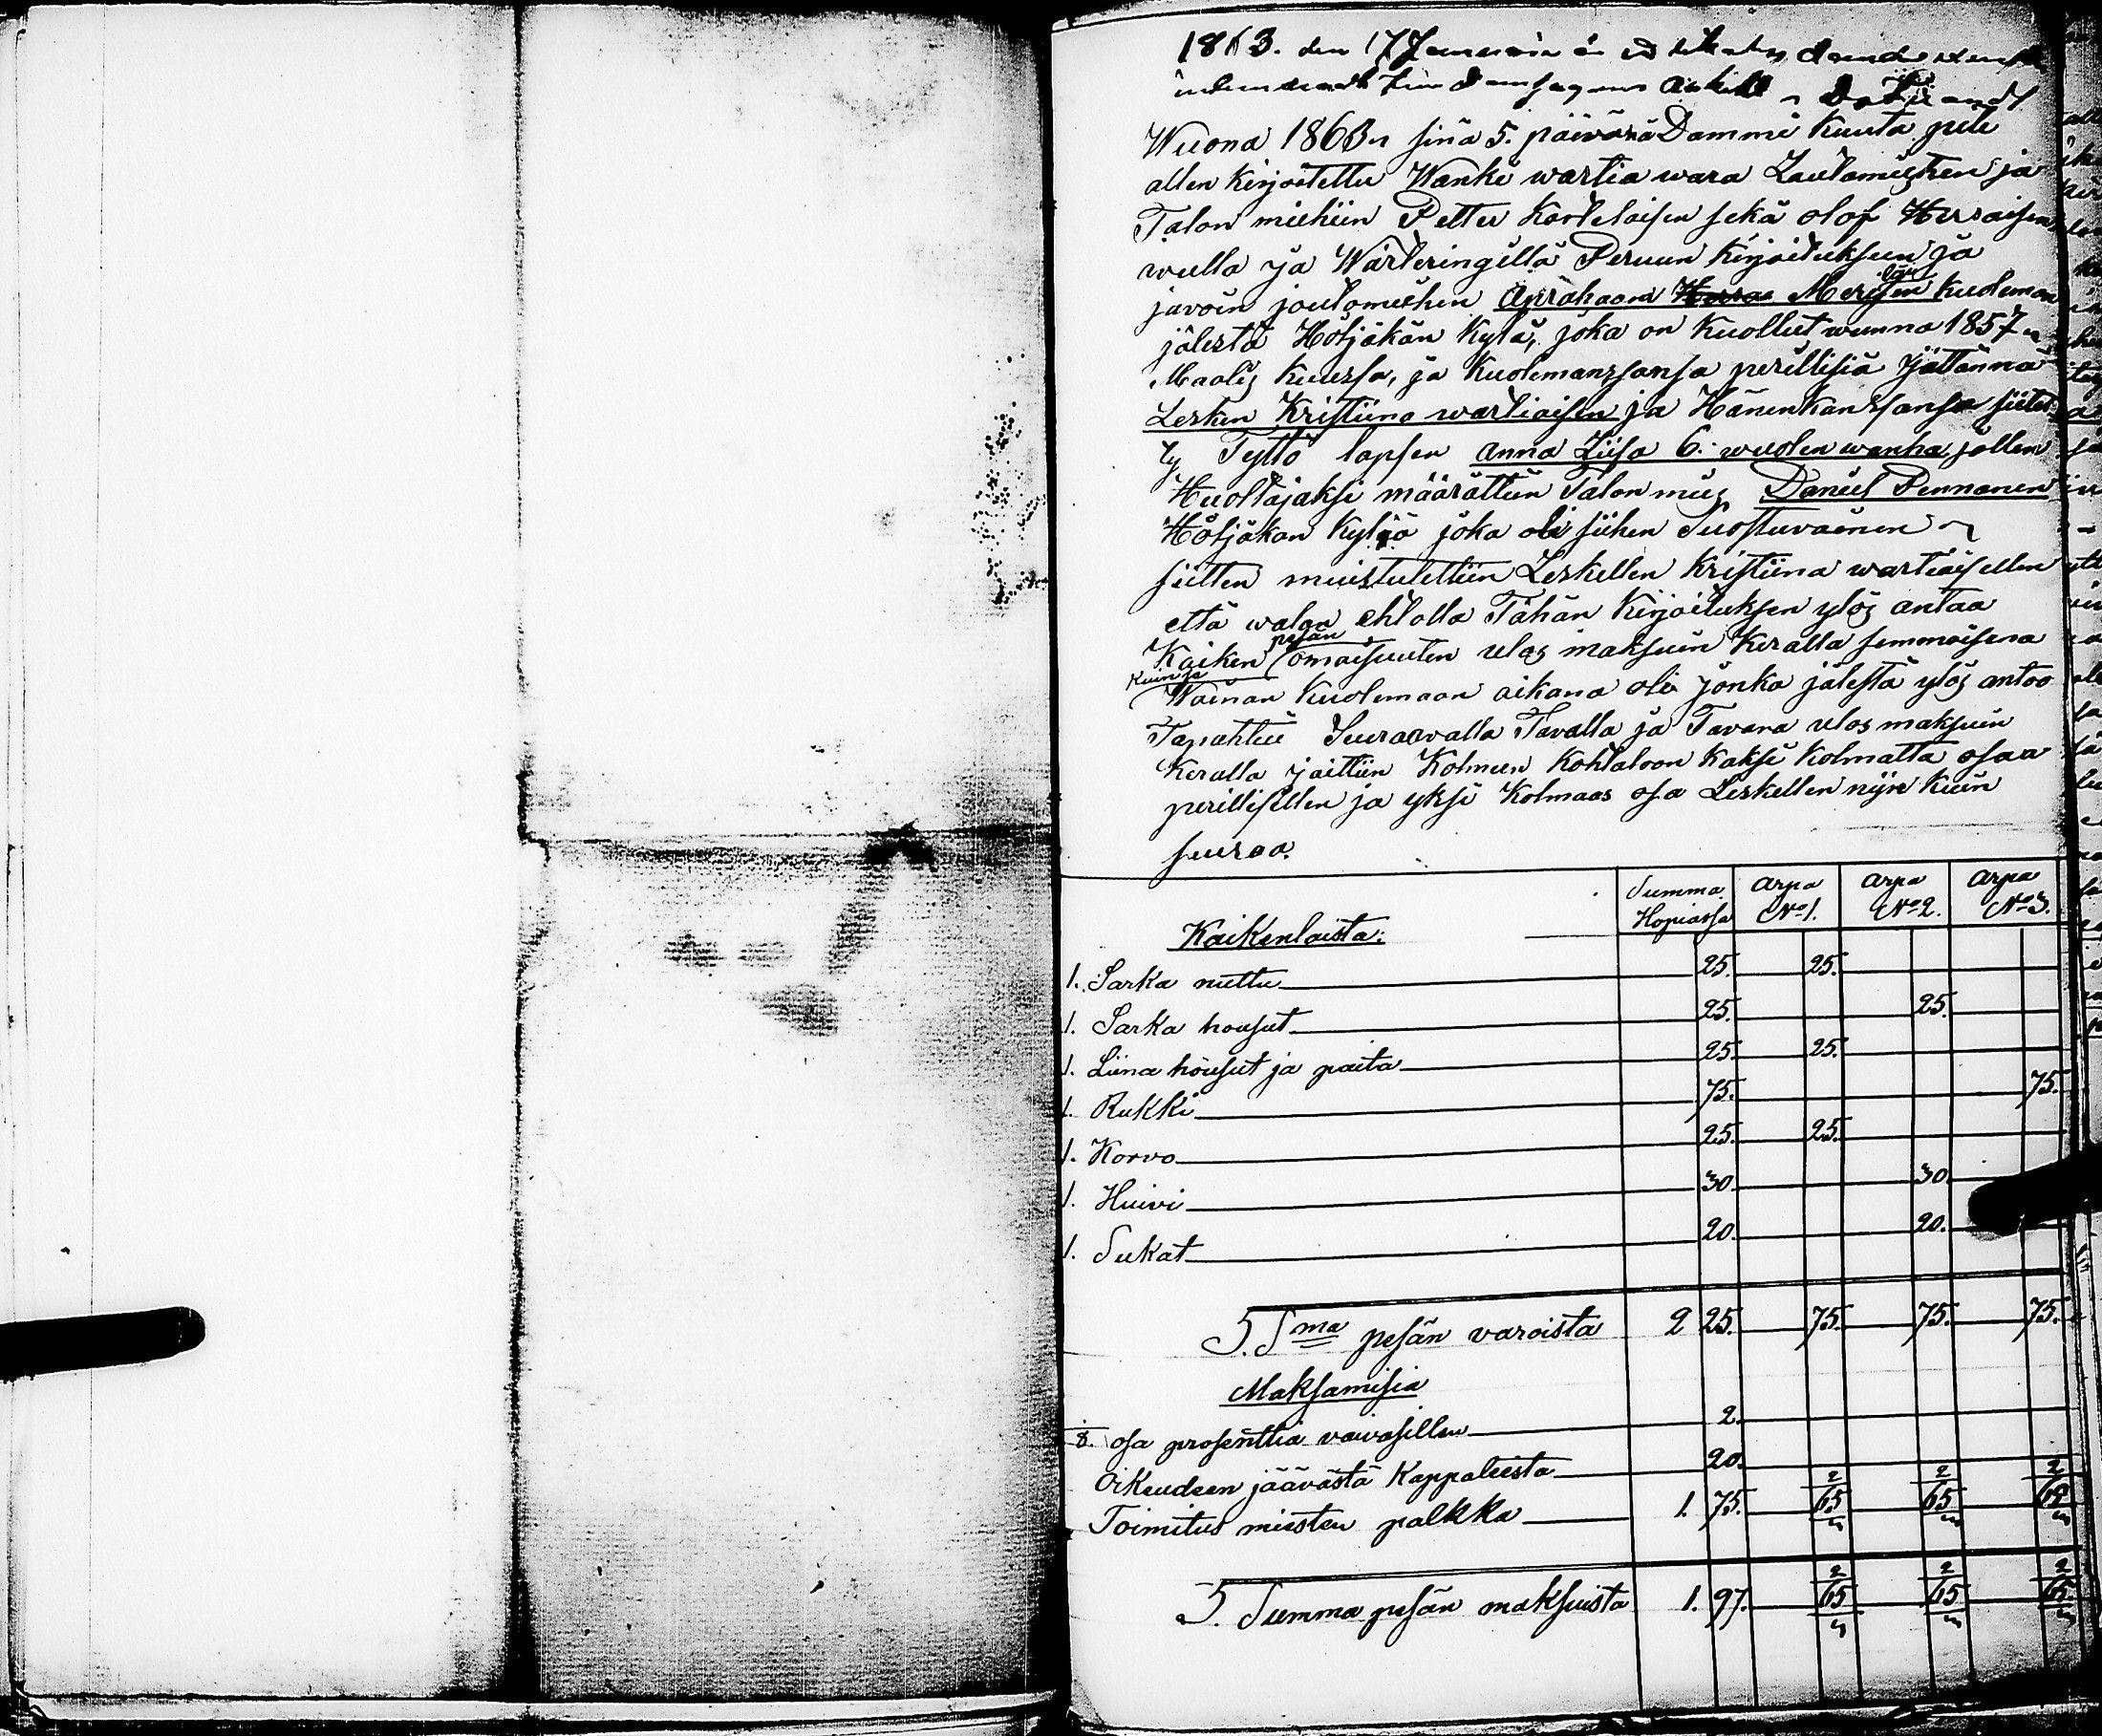 1863. den 17 Januari
Wuona 1863n sinä 5. päivänä Dammi kuuta piti
allen kirjoitettu Wanki wartia wara Lautamiesten ja
Talon miehiin Petter Kortelaisen sekä olof Hirvoisen
wulla ja Wärteringillä Peruun kirjoituksen ja
javoin joulomiehen aprahaam Merjsen kuoleman
jälestä Höljäkän kylä, joka on kuollut wunna 1857n
Maalis kuussa, ja kuolemanssansa perillisiä jättännä
Lesken Kristiina wartiaisen ja Hänenkanssansa siitet
ty Tyttö lapsen anna Liisa 6. wuolen wanha, jollen
Huoltajaksi määrättiin Talon mies Daniel Pennanen
Höljäkan kylä joka oli siihen Suostuvainen
siitten muistutettiin Leskellen Kristiina wartiaisellen
että walan ehtolla Tähän kirjoituksen ylös antaa
Kaiken pesän omaisuuten ulos maksuin keralla semmoisena
kuin ja Wainan kuolemaan aikana oli jonka jälestä ylös antoo
Tapahtui Seuraavalla Tavalla ja Tavara ulos maksuin
keralla jaittiin Kolmeen kohtaloon kaksi kolmatta osaa
perillisillen ja yksi kolmaas osa Leskellen nijn kuin
seuraa.
Summa Hopiassa arpa No 1. arpa No 2. arpa No 3.
Kaikenlaista:
1. Sarka nuttu 25. 25.
1. Sarka housut 25. 25.
1. Liina housut ja paita 25. 25.
1. Rukki 75. 75.
1. Korvo 25. 25.
1. Huivi 30. 30.
1. Sukat 20. 20.
S. Sma pesän varoista 2 25. 75. 75. 75.
Maksamisia
1/8. osa prosenttia vaivasillen 2.
Oikeudeen jäävästä Kappaleesta 20.
Toimitus miesten palkka 1. 75. 65 2/3 65 2/3 65 2/3
S. Summa pesän maksuista 1. 97. 65 2/3 65 2/3 65 2/3